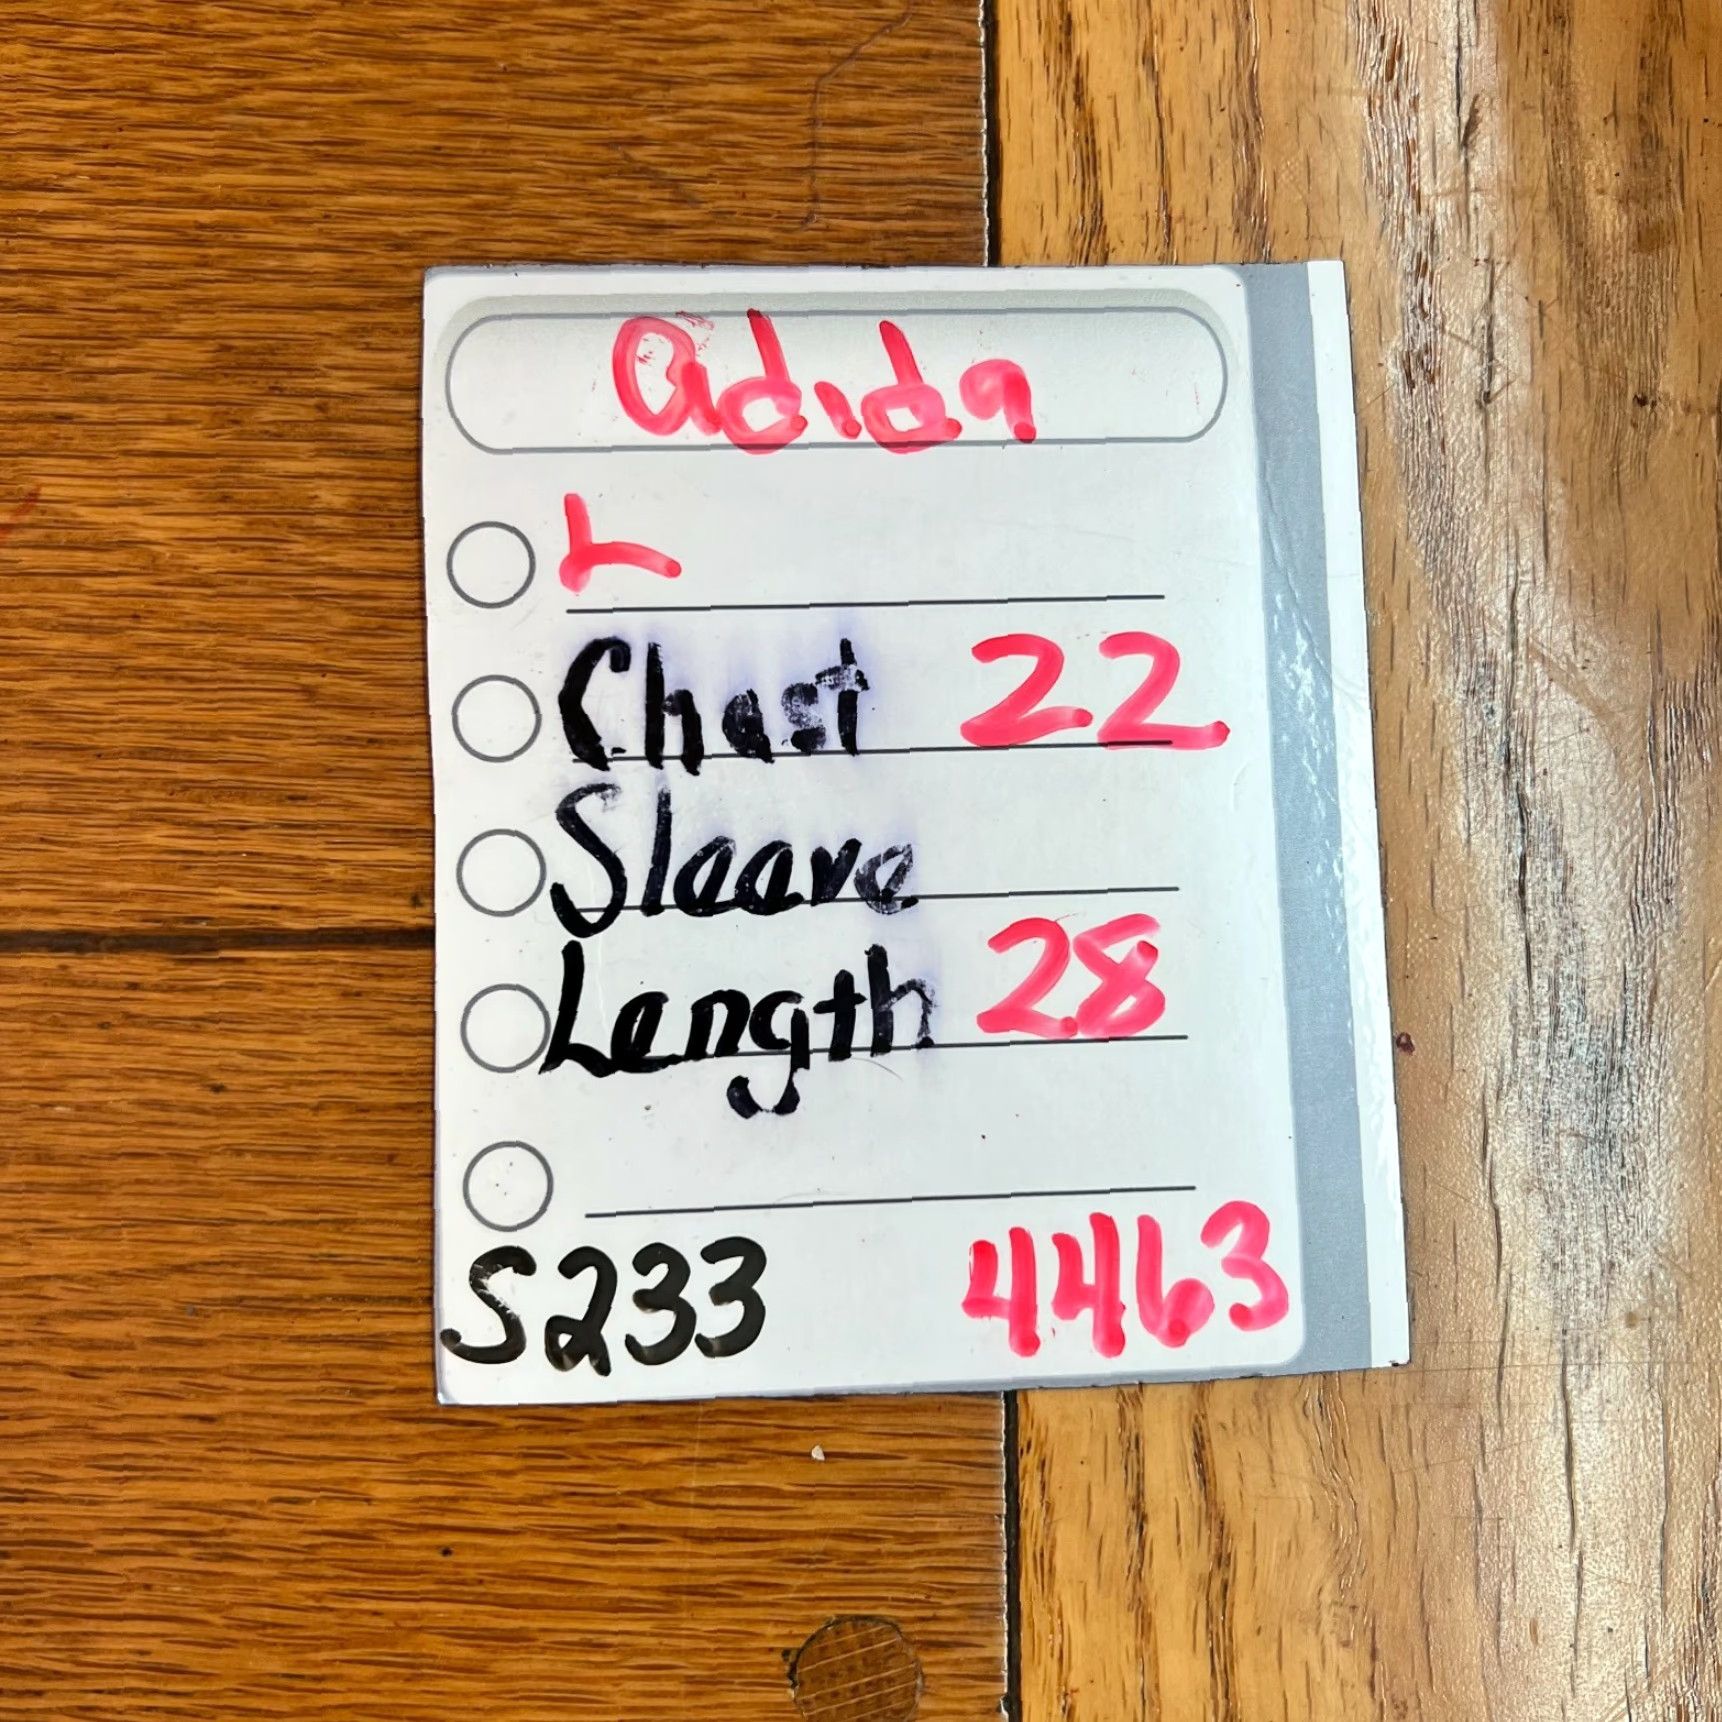 adida
L
Chest 22
Sleeve
Length 28
S233 4463